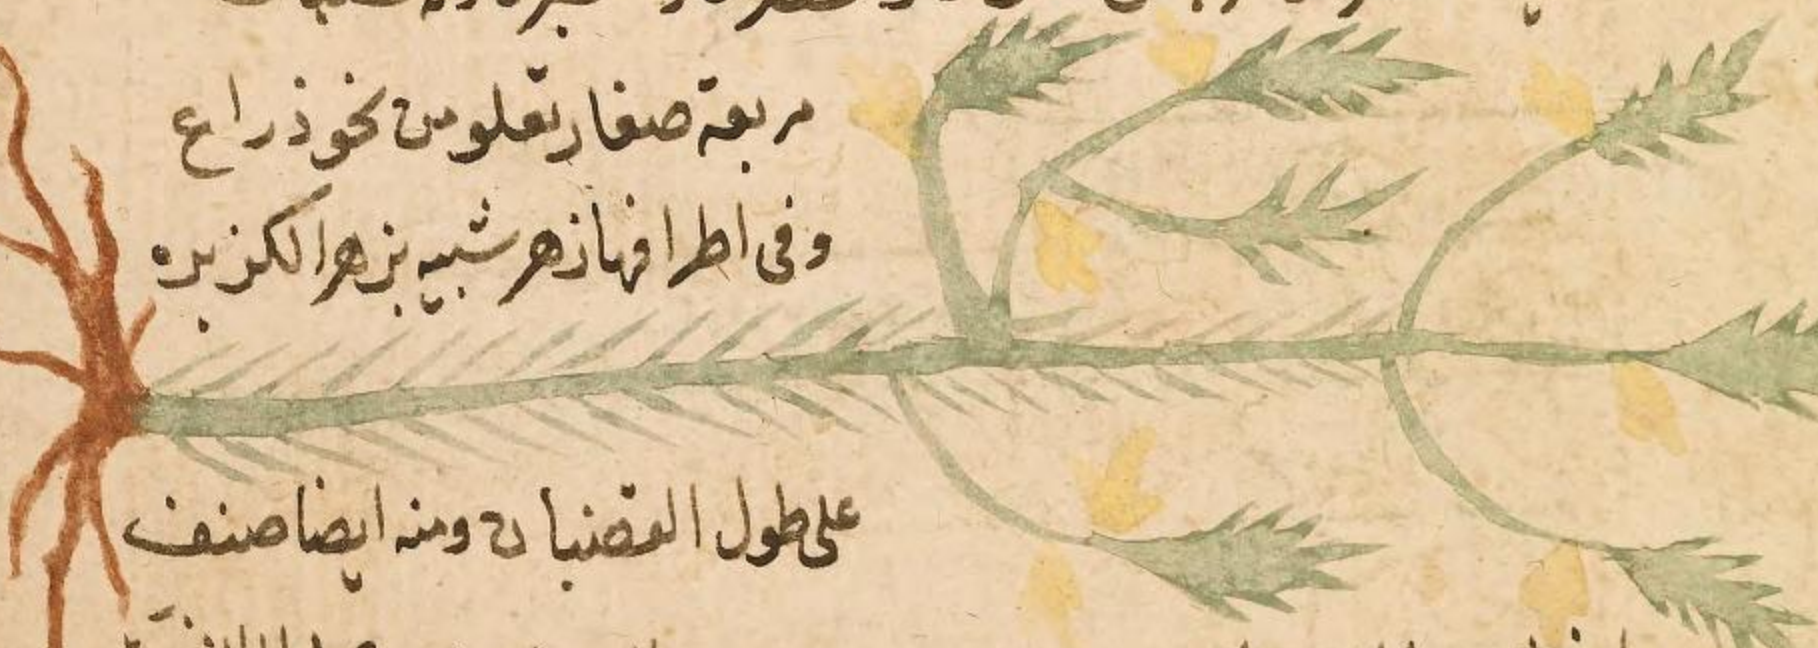 مربعة صغار تعلو من نحو ذراع
وفى اطرافها زهر شبيه بزهر الكزبره
على طول القضبان ومنه ايضا صنف